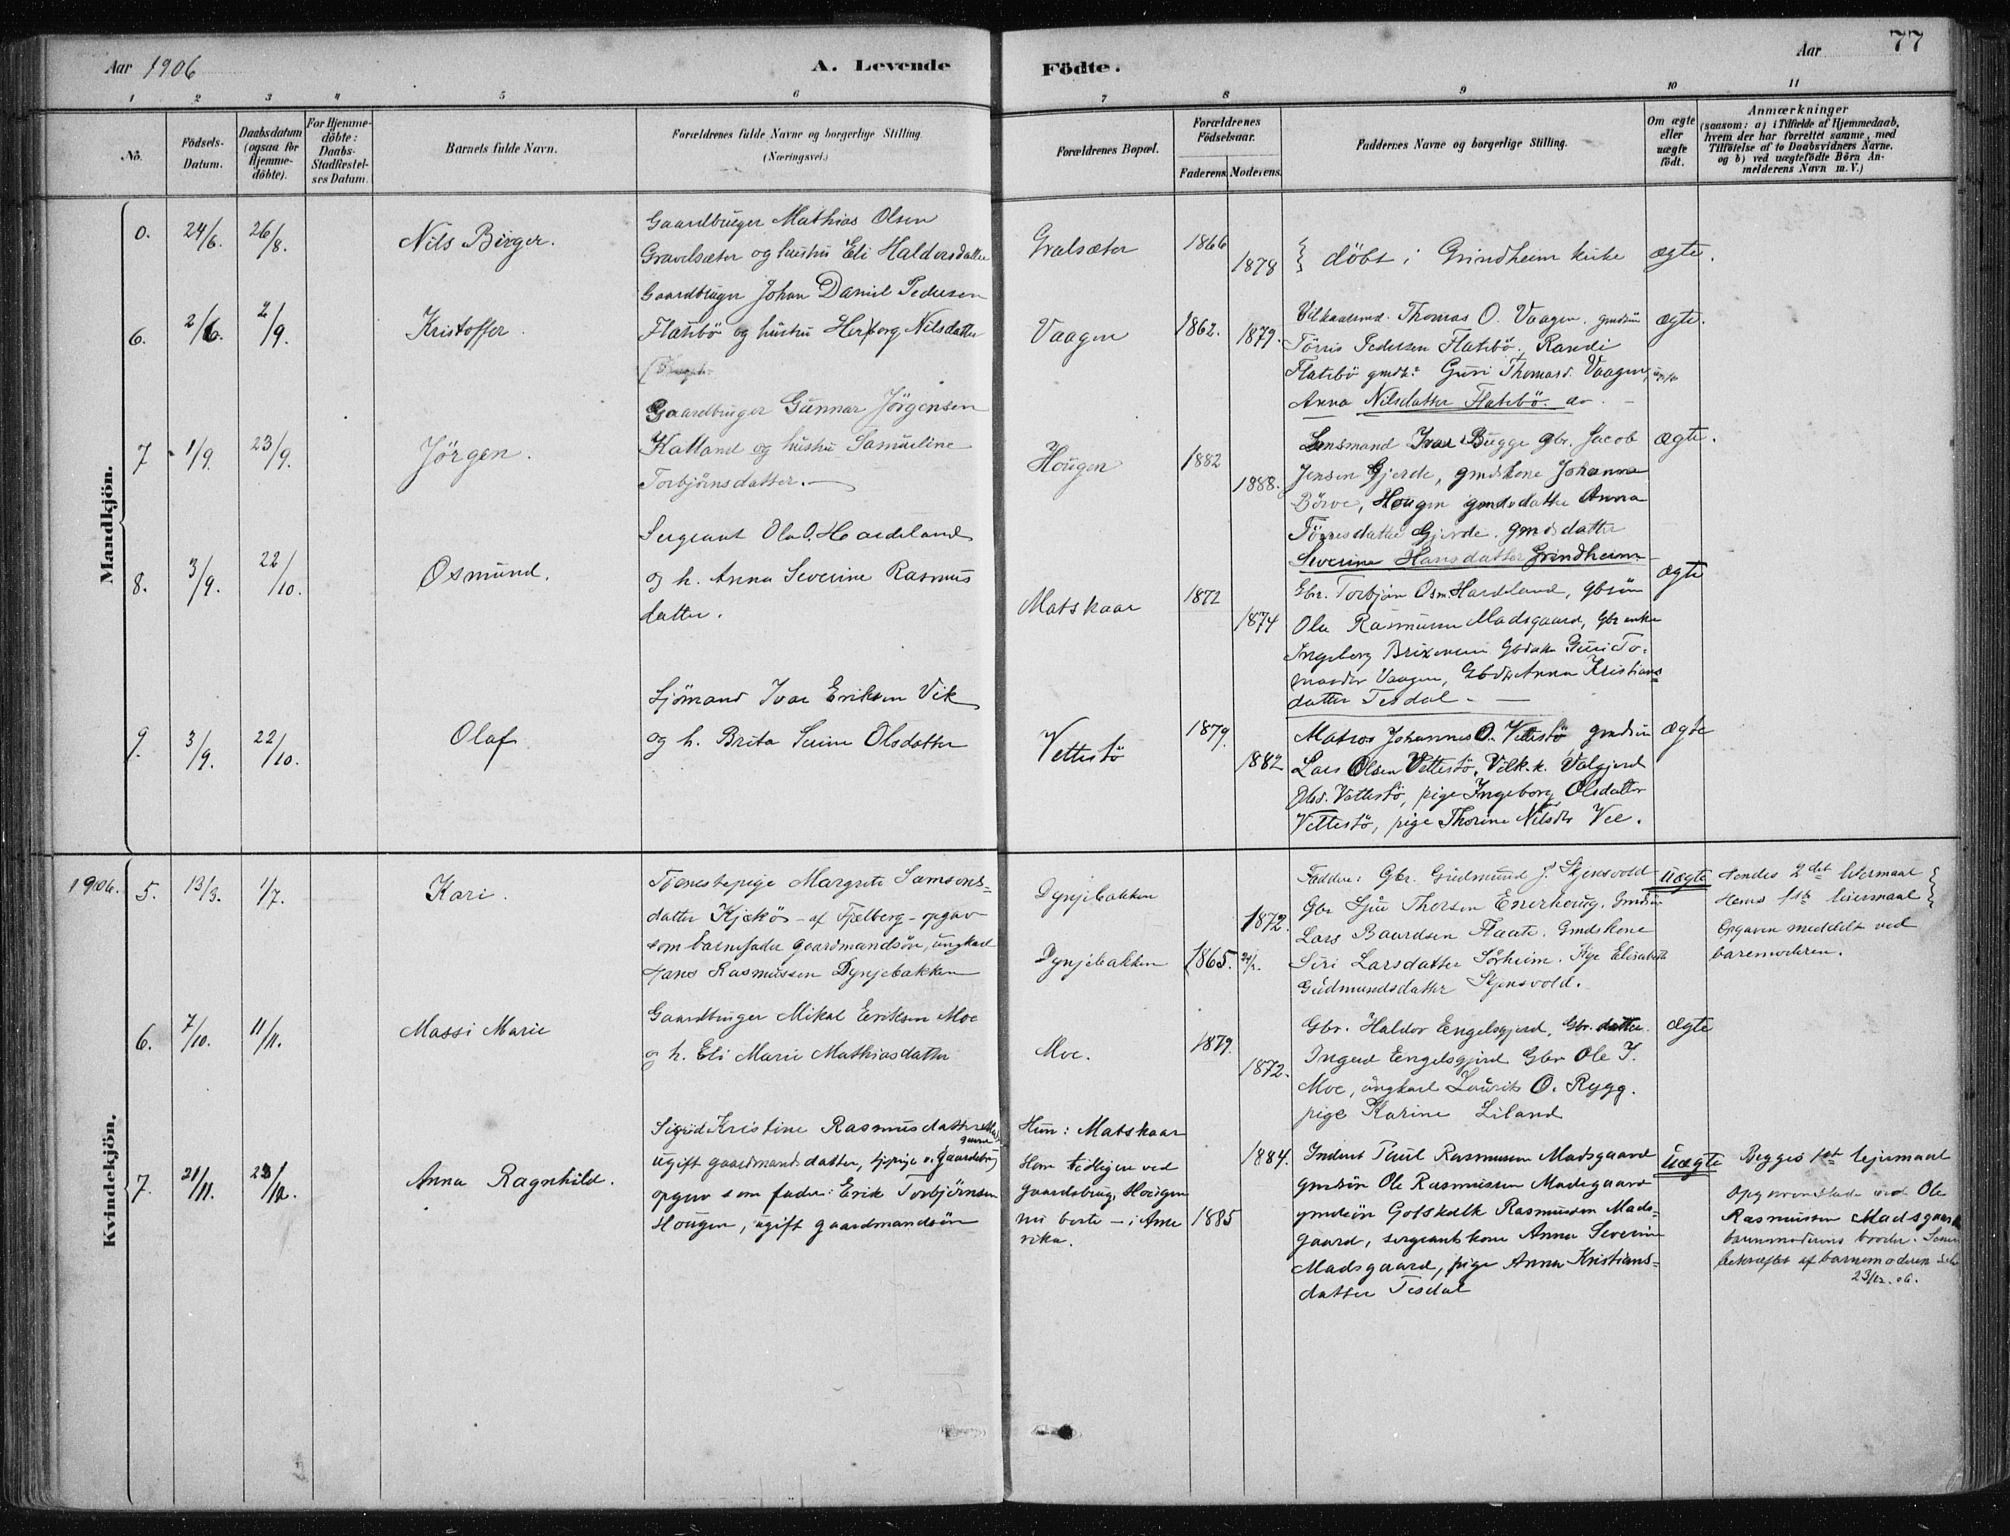 Aar 1906
A. Levende
Födte.
Aar
77
1 2 3 4 5 6 7 8 9 10 11
No.
Födsels-Datum.
Daabsdatum (ogsaa for Hjemme-döbte).
For Hjemme-döbte: Daabs-Stadfæstel-ses Datum.
Barnets fulde Navn.
Forældrenes fulde Navne og borgerlige Stilling. (Næringsvei.)
Forældrenes Bopæl.
Forældrenes Födselsaar.
Faderens. Moderens.
Faddernes Navne og borgerlige Stilling.
Om ægte eller uægte födt.
Anmærkninger
(saasom: a) i Tilfælde af Hjemmedaab, hvem der har forrettet samme, med Tilföielse af to Daabsvidners Navne, og b) ved uægtefödte Börn An-melderens Navn m. V.)
Mandkjön.
0. 24/6. 26/8. Nils Birger.
Gaardbruger Mathias Olsen
Gravelsæter og hustru Eli Haldorsdatter
Gralsæter 1866 1878
döbt i Grindheim kirke
ægte.
6. 2/6. 2/9. Kristoffer.
Gaardbruger Johan Daniel Pedersen
Flatebö og hustru Herborg Nilsdatter
Vaagen 1862. 1879.
Vilkaarsmd. Thomas O. Vaagen. gmdsön
Törris Pedersen Flatebö, Randi
Flatebö gmdk. Guri Thomasd. Vaagen,
Anna Nilsdatter Flatebö.
ægte.
7 1/9. 23/9. Jörgen.
Gaardbruger Gunnar Jörgensen
Kalland og hustru Samueline
Torbjörnsdatter.
Hougen 1882 1888.
Lensmand Ivar Bugge Gbr. Jacob
Jensen Gjerde, gmdskone Johanna
Börve, Hougen gmdsdatter Anna
Törresdatter Gjerde. gmdsdatter
Severine Hansdatter Grindheim
ægte.
8. 3/9. 22/10. Osmund.
Sergeant Ola O. Hardeland
og h. Anna Severine Rasmus
datter.
Matskaar 1872 1874
Gbr. Torbjörn Osm. Hardeland, gbsön
Ole Rasmussen Madsgaard, Gbr enke
Ingeborg Gbdatt Guri To-
Vaagen, Gbdtr Anna Kristians-
datter Tesdal.
ægte
9. 3/9. 22/10. Olaf
Sjömand Ivar Eriksen Vik
og h. Brita Serine Olsdatter
Vettestö 1879. 1882
Matros Johannes O. Vettestö gmdsön
Lars Olsen Vettestö, Vilk.k. Valgjerd
Vettestö, pige Ingeborg Olsdatter
Vettestö, pige Thorine Nilsdtr Vee.
ægte
1906.
Kvindekjön.
5. 13/3. 1/7. Kari.
Tjenestepige Margrete Samsons-
datter Kjekös - af Fjelberg - opgav
som barnefader gaardmandsön, ungkarl
Hans Rasmussen Dynjebakken
Dynjebakken
Dynjebakken 1865. 1872.
Faddere: Gbr. Gudmund J. Skjensvold
Gbr Sjur Thorsen Enerhaug. Gmdsön
Lars Baardsen Flaate. Gmdskone
Siri Larsdatter Sörheim. Pige Elisabeth
Gudmundsdatter Skjensvold.
uægte
Hendes 2det leiermaal
Hans 1ste leiermaal
Opgaven meddelt ved
barnemoderen.
6. 7/10. 11/11. Massi Marie
Gaardbruger Mikal Eriksen Moe
og h. Eli Marie Mathiasdatter
Moe. 1879. 1872.
Gbr. Haldor Engelsgjerd, Gbr. datter
Ingerd Engelsgjerd Gbr Ole I.
Moe, ungkarl Laurits O. Rygg.
pige Karine Liland
ægte
7. 21/11. 23/12. Anna Ragnhild.
Sigrid Kristine Rasmusdatter Mads
gaard
ugift gaardmandsdatter,
opgav som fader: Erik Torbjörnsen
Hougen, ugift gaardmandsön
Hun: Matskaar
Han tidligere ved
gaardsbrug, Hougen
nu borte - i Ame
rika.
1885 1884.
Inderst Paul Rasmussen Madsgaard
gmdsön Ole Rasmussen Madsgaard
gmdsön Gotskalk Rasmussen Mads-
gaard, sergeantskone Anna Severine
Madsgaard, pige Anna Kristians-
datter Tesdal
uægte
Begges 1ste lejermaal
Opgaven ved Ole
Rasmussen Madsgaard
barnemoderens broder.
bekræftet af barnemoderen
23/12.06.